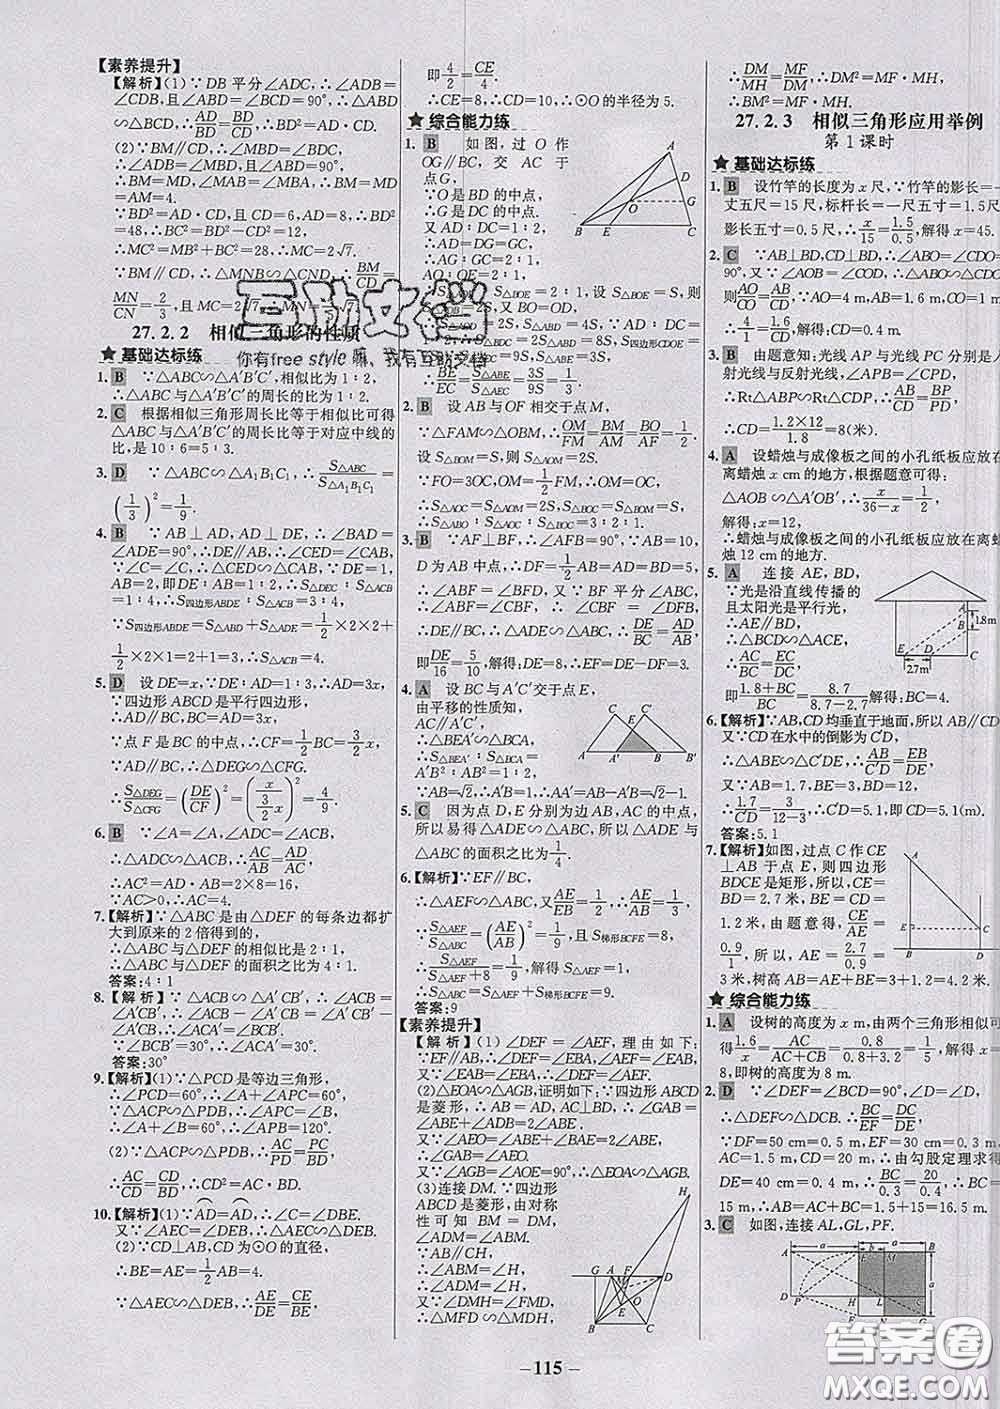 【素养提升】
【解析】(1)∵DB平分∠ADC,∴∠ADB=
∠CDB,且∠ABD=∠BCD=90°,∴△ABD
∽△BCD,∴AD/BD=BD/CD,∴BD²=AD·CD.
(2)∵BM∥CD,∴∠MBD=∠BDC,
∴∠ADB=∠MBD,且∠ABD=90°,
∴BM=MD,∠MAB=∠MBA,
∴BM=MD=AM=4.
∵BD²=AD·CD,且CD=6,AD=8,∴BD²
=48,∴BC²=BD²-CD²=12,
∴MC²=MB²+BC²=28,∴MC=2√7.
∵BM∥CD,∴△MNB∽△CND,∴BM/CD=
MN/CN=2/3,且MC=2√7,
27.2.2 相似三角形的性质
★基础达标练
1. B ∵△ABC∽△A′B′C′,相似比为1∶2,
∴△ABC与△A′B′C′的周长的比为1∶2.
2. C 根据相似三角形周长比等于相似比可得
△ABC与△A′B′C′的周长比等于对应中线的
比,是10∶6=5∶3.
3. D ∵△ABC∽△A₁B₁C₁,∴S△ABC/S△A₁B₁C₁=
(1/3)²=1/9.
4. B ∵AB⊥AD,AD⊥DE,∴∠BAD=
∠ADE=90°,∴DE∥AB,∴∠CED=∠CAB,
∵∠C=∠C,∴△CED∽△CAB,∵DE=1,
AB=2,即DE∶AB=1∶2,∴S△DEC∶S△ACB
=1∶4,∴S四边形ABDE∶S△ACB=3∶4,
∵S四边形ABDE=S△ABD+S△ADE=1/2×2×2+
1/2×2×1=2+1=3,∴S△ACB=4.
5. D 设DE=x,∵DE∶AD=1∶3,∴AD=3x,
∵四边形ABCD是平行四边形,
∴AD∥BC,BC=AD=3x,
∵点F是BC的中点,∴CF=1/2BC=3/2x,
∵AD∥BC,∴△DEG∽△CFG,
∴S△DEG/S△CFG=(DE/CF)²=(x/(3/2x))²=4/9
6. B ∵∠A=∠A,∠ADC=∠ACB,
∴△ADC∽△ACB,∴AC/AB=AD/AC,
∴AC²=AD·AB=2×8=16,
∵AC>0,∴AC=4.
7.【解析】∵△ABC是由△DEF的每条边都扩
大到原来的2倍得到的,
∴△ABC与△DEF的相似比是2∶1,
∴△ABC与△DEF的面积之比为4∶1.
答案:4∶1
8.【解析】∵△ACB∽△A′CB′,∴∠ACB=
∠A′CB′,∴∠ACB-∠A′CB=∠A′CB′-
∠A′CB,∴∠ACA′=∠BCB′.
∵∠BCB′=30°,∴∠ACA′=30°.
答案:30°
9.【解析】(1)∵△PCD是等边三角形,
∴∠PCD=60°,∴∠A+∠APC=60°,
∵△ACP∽△PDB,∴∠APC=∠B,
∴∠A+∠B=60°,∴∠APB=120°.
(2)∵△ACP∽△PDB,∴AC/PD=PC/BD,
∴AC/CD=CD/BD,∴CD²=AC·BD.
10.【解析】(1)∵AD=AD,∴∠C=∠DBE.
又∵∠AEC=∠DEB,∴△AEC∽△DEB.
(2)∵CD⊥AB,CD为⊙O的直径,
∴BE=AE=1/2AB=4.
∵△AEC∽△DEB,∴AE/DE=CE/BE,
即4/2=CE/4.
∴CE=8,∴CD=10,∴⊙O的半径为5.
★综合能力练
1. B 如图,过O作
OG∥BC,交AC于
点G,
∵O是BD的中点,
∴G是DC的中点.
又AD∶DC=1∶2,
∴AD=DG=GC,
∴AG∶GC=2∶1,
AO∶OE=2∶1,
∴BE/EC=S△ABE/S△AEC
2. B 设AB与OF相交于点M,
∵△FAM∽△OBM,∴OM/FM=BM/AM=BO/AF=1/2.
设S△BOM=S,则S△AOM=2S,
∵FO=3OM,OM=1/2FM=FO,
∴S△ABO∶S△BOC=3∶2∶1.
3. B ∵AF⊥BF,∴∠AFB=90°,∵AB=10,
D为AB中点,∴DF=1/2AB=AD=BD=5,
∴∠ABF=∠BFD,又∵BF平分∠ABC,
∴∠ABF=∠CBF,∴∠CBF=∠DFB,
∴DE∥BC,∴△ADE∽△ABC,∴DE/BC=AD/AB,
即DE/16=5/10,解得:DE=8,∴EF=DE-DF=3.
4. A 设BC与A′C′交于点E,
由平移的性质知,
AC∥A′C′,
∴△BEA′∽△BCA,
∴S△BEA′∶S△BCA=
A′B²∶AB²=1∶2,
∵AB=√2,∴A′B=1,∴AA′=AB-A′B=√2-1.
5. C 因为点D,E分别为边AB,AC的中点,
所以易得△ADE∽△ABC,所以△ADE与
△ABC的面积之比为1/4.
6.【解析】∵EF∥BC,
∴△AEF∽△ABC,又AE/EB=1/2,∴AE/AB=1/3,
∴S△AEF/S△ABC=(AE/AB)²=1/9,且S梯形BCFE=8,
∴S△AEF/(S△AEF+8)=1/9,解得S△AEF=1,
∴S△ABC=S△AEF+S梯形BCFE=9.
答案:9
【素养提升】
【解析】(1)∠DEF=∠AEF,理由如下:
∵EF∥AB,∴∠DEF=∠EBA,∠AEF=∠EAB,
又∵∠EAB=∠EBA,∴∠DEF=∠AEF.
(2)△EOA∽△AGB,证明如下:∵四边形ABCD
是菱形,∴AB=AD,AC⊥BD,∴∠GAB=
∠ABE+∠ADB=2∠ABE.
又∵∠AEO=∠ABE+∠BAE=2∠ABE,
∴∠GAB=∠AEO.
又∵∠AGB=∠AOE=90°,∴△EOA∽△AGB.
(3)连接DM.∵四边形
ABCD是菱形,由对称
性可知BM=DM,
∠ADM=∠ABM.
∵AB∥CH,
∴∠ABM=∠H,
∴∠ADM=∠H.
又∵∠DMH=∠FMD,
∴△MFD
∴DM/MH=MF/DM,∴DM²=MF·MH,
∴BM²=MF·MH.
27.2.3 相似三角形应用举例
第1课时
★基础达标练
1. B 设竹竿的长度为x尺,∵竹竿的影长=一
丈五尺=15尺,标杆长=一尺五寸=1.5尺,
影长五寸=0.5尺,∴x/15=1.5/0.5,解得x=45.
2. C ∵AB⊥BD,CD⊥BD,∴∠ABO=∠CDO=
90°,又∵∠AOB=∠COD,∴△ABO∽△CDO,
∴4/1=1.6/CD,∴CD=0.4 m.
3. B 由题意知:光线AP与光线PC分别是入
射光线与反射光线,∠APB=∠CPD,
∴Rt△ABP∽Rt△CDP,∴AB/CD=BP/PD,
∴CD=1.2×12/1.8=8(米).
4. A 设蜡烛与成像板之间的小孔纸板应放在
离蜡烛x cm的地方,根据题意可得:
△AOB∽△A′OB′,∴x/(36-x)=1/2,
解得:x=12,
∴蜡烛与成像板之间的小孔纸板应放在离蜡
烛12 cm的地方.
5. A 连接AE,BD,
∵光是沿直线传播的
且太阳光是平行光,
∴AE∥BD,
∴△BCD∽△ACE,
∴AC/BC=EC/DC,
即(1.8+BC)/BC=8.7/(8.7-2.7)解得:BC=4.
6.【解析】∵AB,CD均垂直于地面,所以AB∥CD
又∵CD在水中的倒影为C′D,
∴△ABE∽△C′DE,∴AB/C′D=EB/DE
又∵AB=1.7,BE=3,BD=12,
∴1.7/C′D=3/(12-3),∴C′D=5.1,即CD=5.1(m)
答案:5.1
7.【解析】如图,过点C作CE
⊥AB于点E,则四边形
BDCE是矩形,所以CE=
BD=2.7米,BE=CD=
1.2米,由题意得,AE/CE=
0.9/1,所以,AE=2.7/0.9=
3米,树高AB=AE+BE=3+1.2=4.2米.
★综合能力练
1. A 设树的高度为x m,由两个三角形相似可
得1.6/x=AC/(AC+CB)=0.8/(0.8+3.2)=1/5,解得x=
8,即树的高度为8 m.
2. D ∵∠DEF=∠BCD=90°,∠D=∠D,
∴△DEF∽△DCB.∴BC/EF=DC/DE.
∵DF=50 cm=0.5 m,EF=30 cm=0.3 m,
AC=1.5 m,CD=20 m,∴由勾股定理求得
DE=40 cm=0.4 m,∴BC/0.3=20/0.4,∴BC=
15 m,∴AB=AC+BC=1.5+15=16.5 m.
3. C 如图,连接AL,GL,PF.
互助文档
你有free style嘛,我有互助文档
答案圈
MXQE.COM
-115-